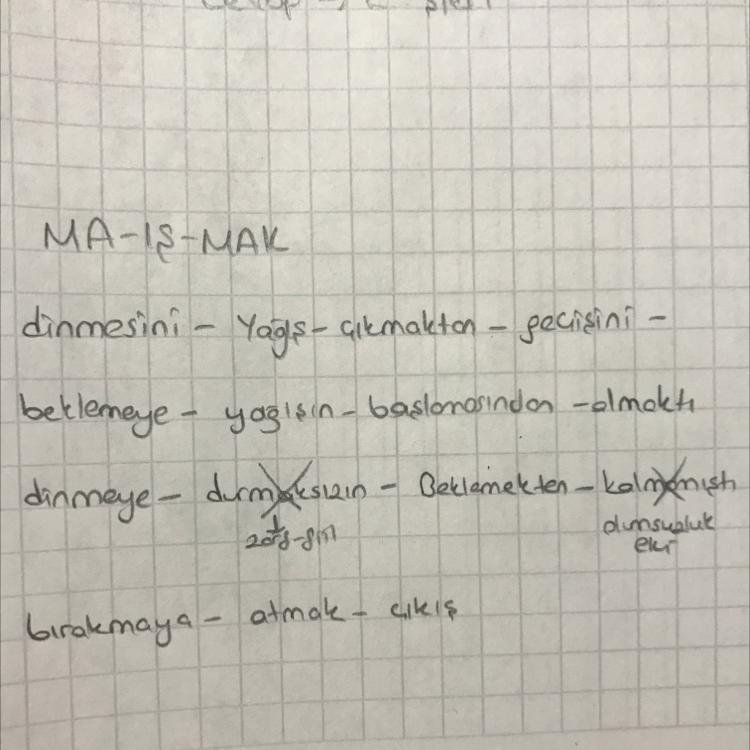 MA-IŞ-MAK
dinmesini - Yağış - çıkmaktan - geçişini -
beklemeye - yağışın - başlamasından - olmaktı
dinmeye - durmaksızın - Beklemekten - kalmamıştı
zarf-fiil olumsuzluk
eki
bırakmaya - atmak - çıkış